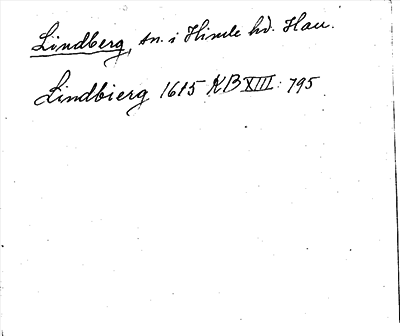 Lindberg, sn. i Himle hd. Hall.
Lindbierg 1685 KB XIII: 795